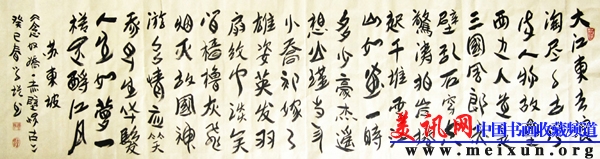 大江东去浪
淘尽千古风
流人物故垒
西边人道是
三国周郎赤
壁乱石穿空
惊涛拍岸卷
起千堆雪江
山如画一时
多少豪杰遥
想公瑾当年
小乔初嫁了
雄姿英发羽
扇纶巾谈笑
间樯橹灰
飞烟灭故国神
游多情应笑
我早生华髮
人生如梦一
樽还酹江月
苏东坡
念奴娇赤壁怀古
癸巳春
美讯网 中国书画收藏频道
www.meixun.org